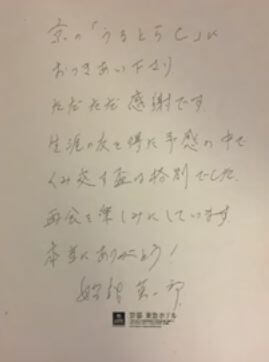 京の「うるとらC」に
おつきあい下さり
ただただ感謝です
生涯の友を得た予感の中で
くみ交す盃は格別でした
再会を楽しみにしています
本当にありがとう!
京都 東急ホテル